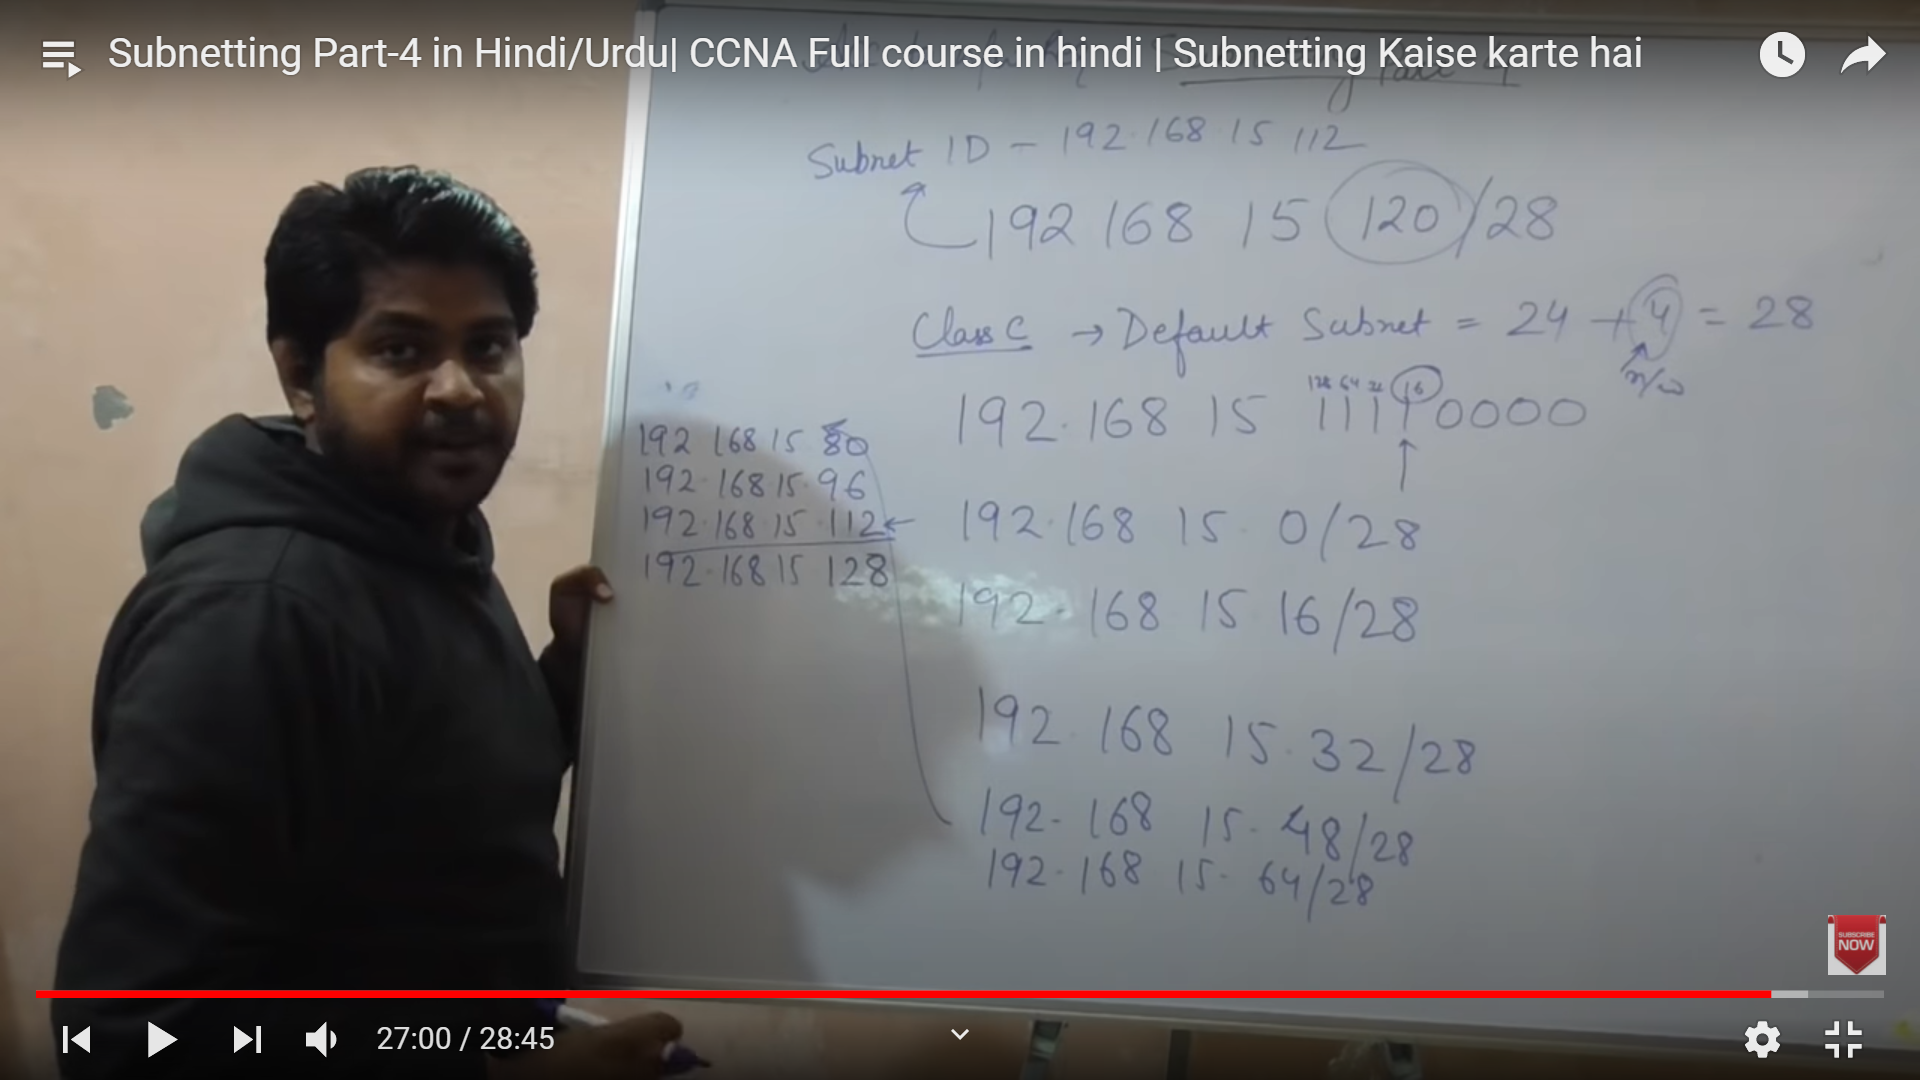 Subnetting Part-4 in Hindi/Urdu| CCNA Full course in hindi | Subnetting Kaise karte hai
Subnet ID - 192.168.15 112
192 168 15 120/28
Class C → Default Subnet = 24 + 4 = 28
n/w
128 64 32 16
192.168 15 11110000
192 168 15 80
192.168 15.96
192.168.15.112 ←
192.168 15 128
192.168 15. 0/28
192.168 15 16/28
192.168 15.32/28
192.168 15.48/28
192.168 15.64/28
SUBSCRIBE
NOW
27:00 / 28:45